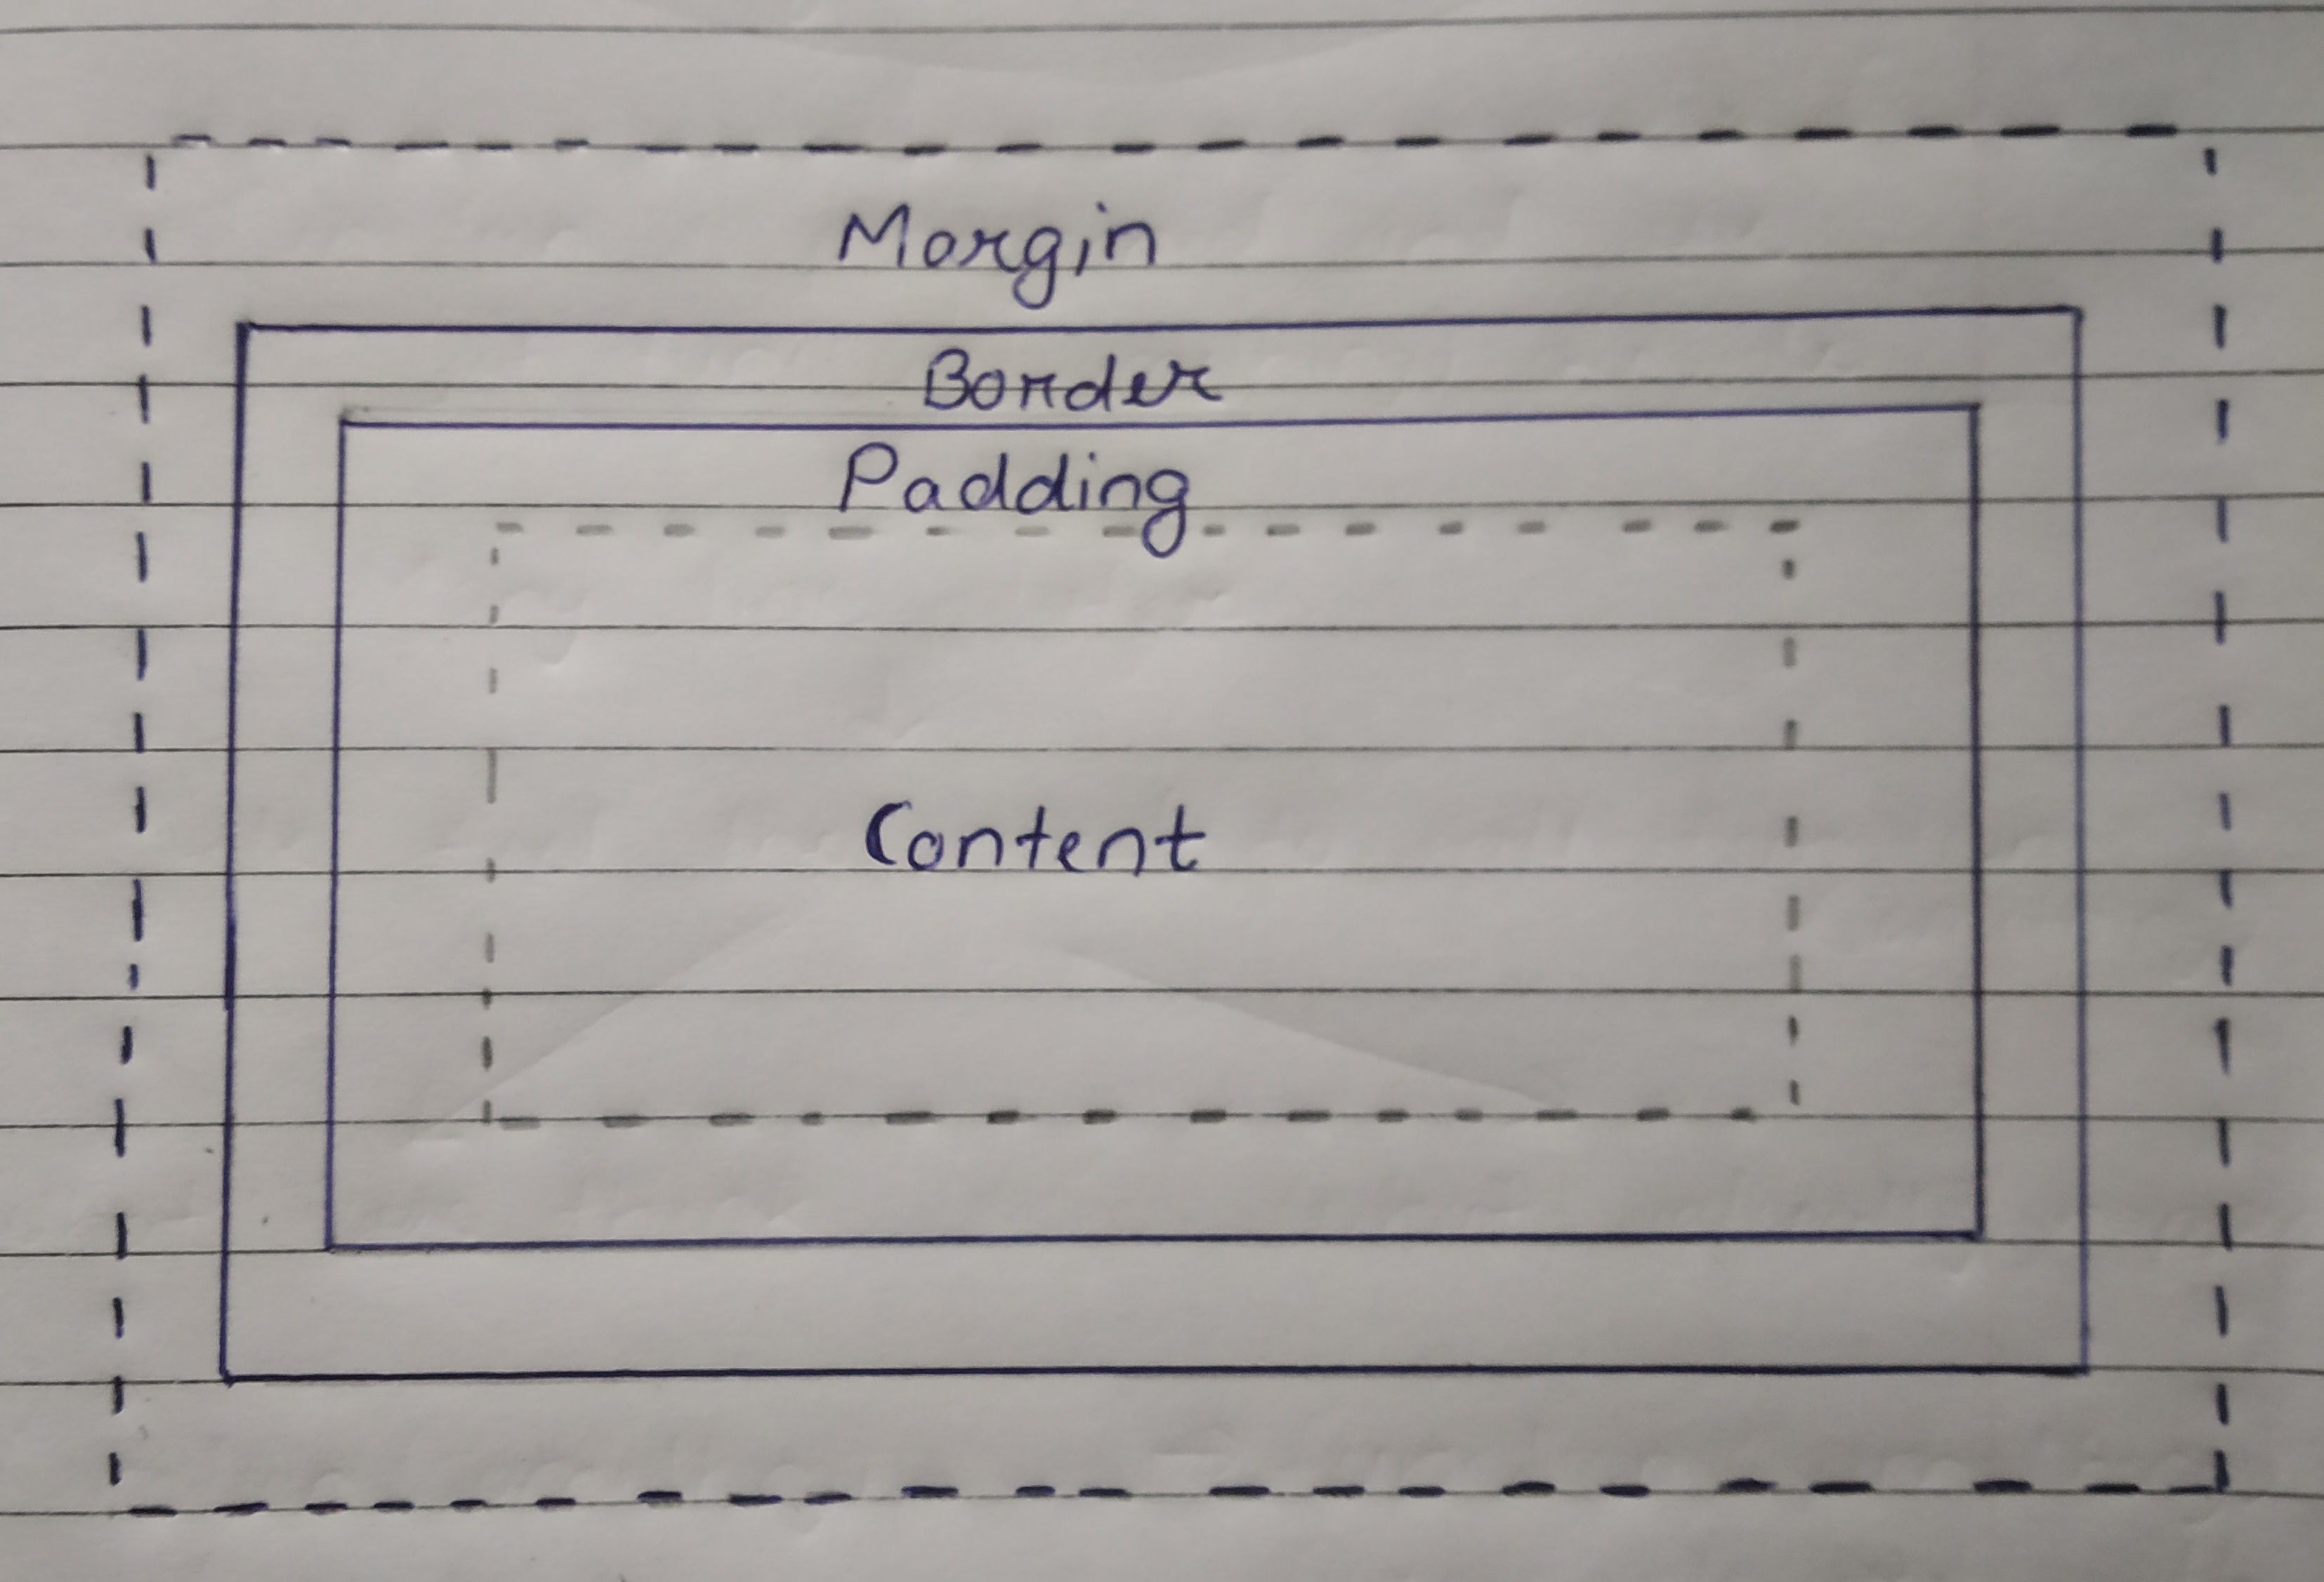 Margin
Border
Padding
Content